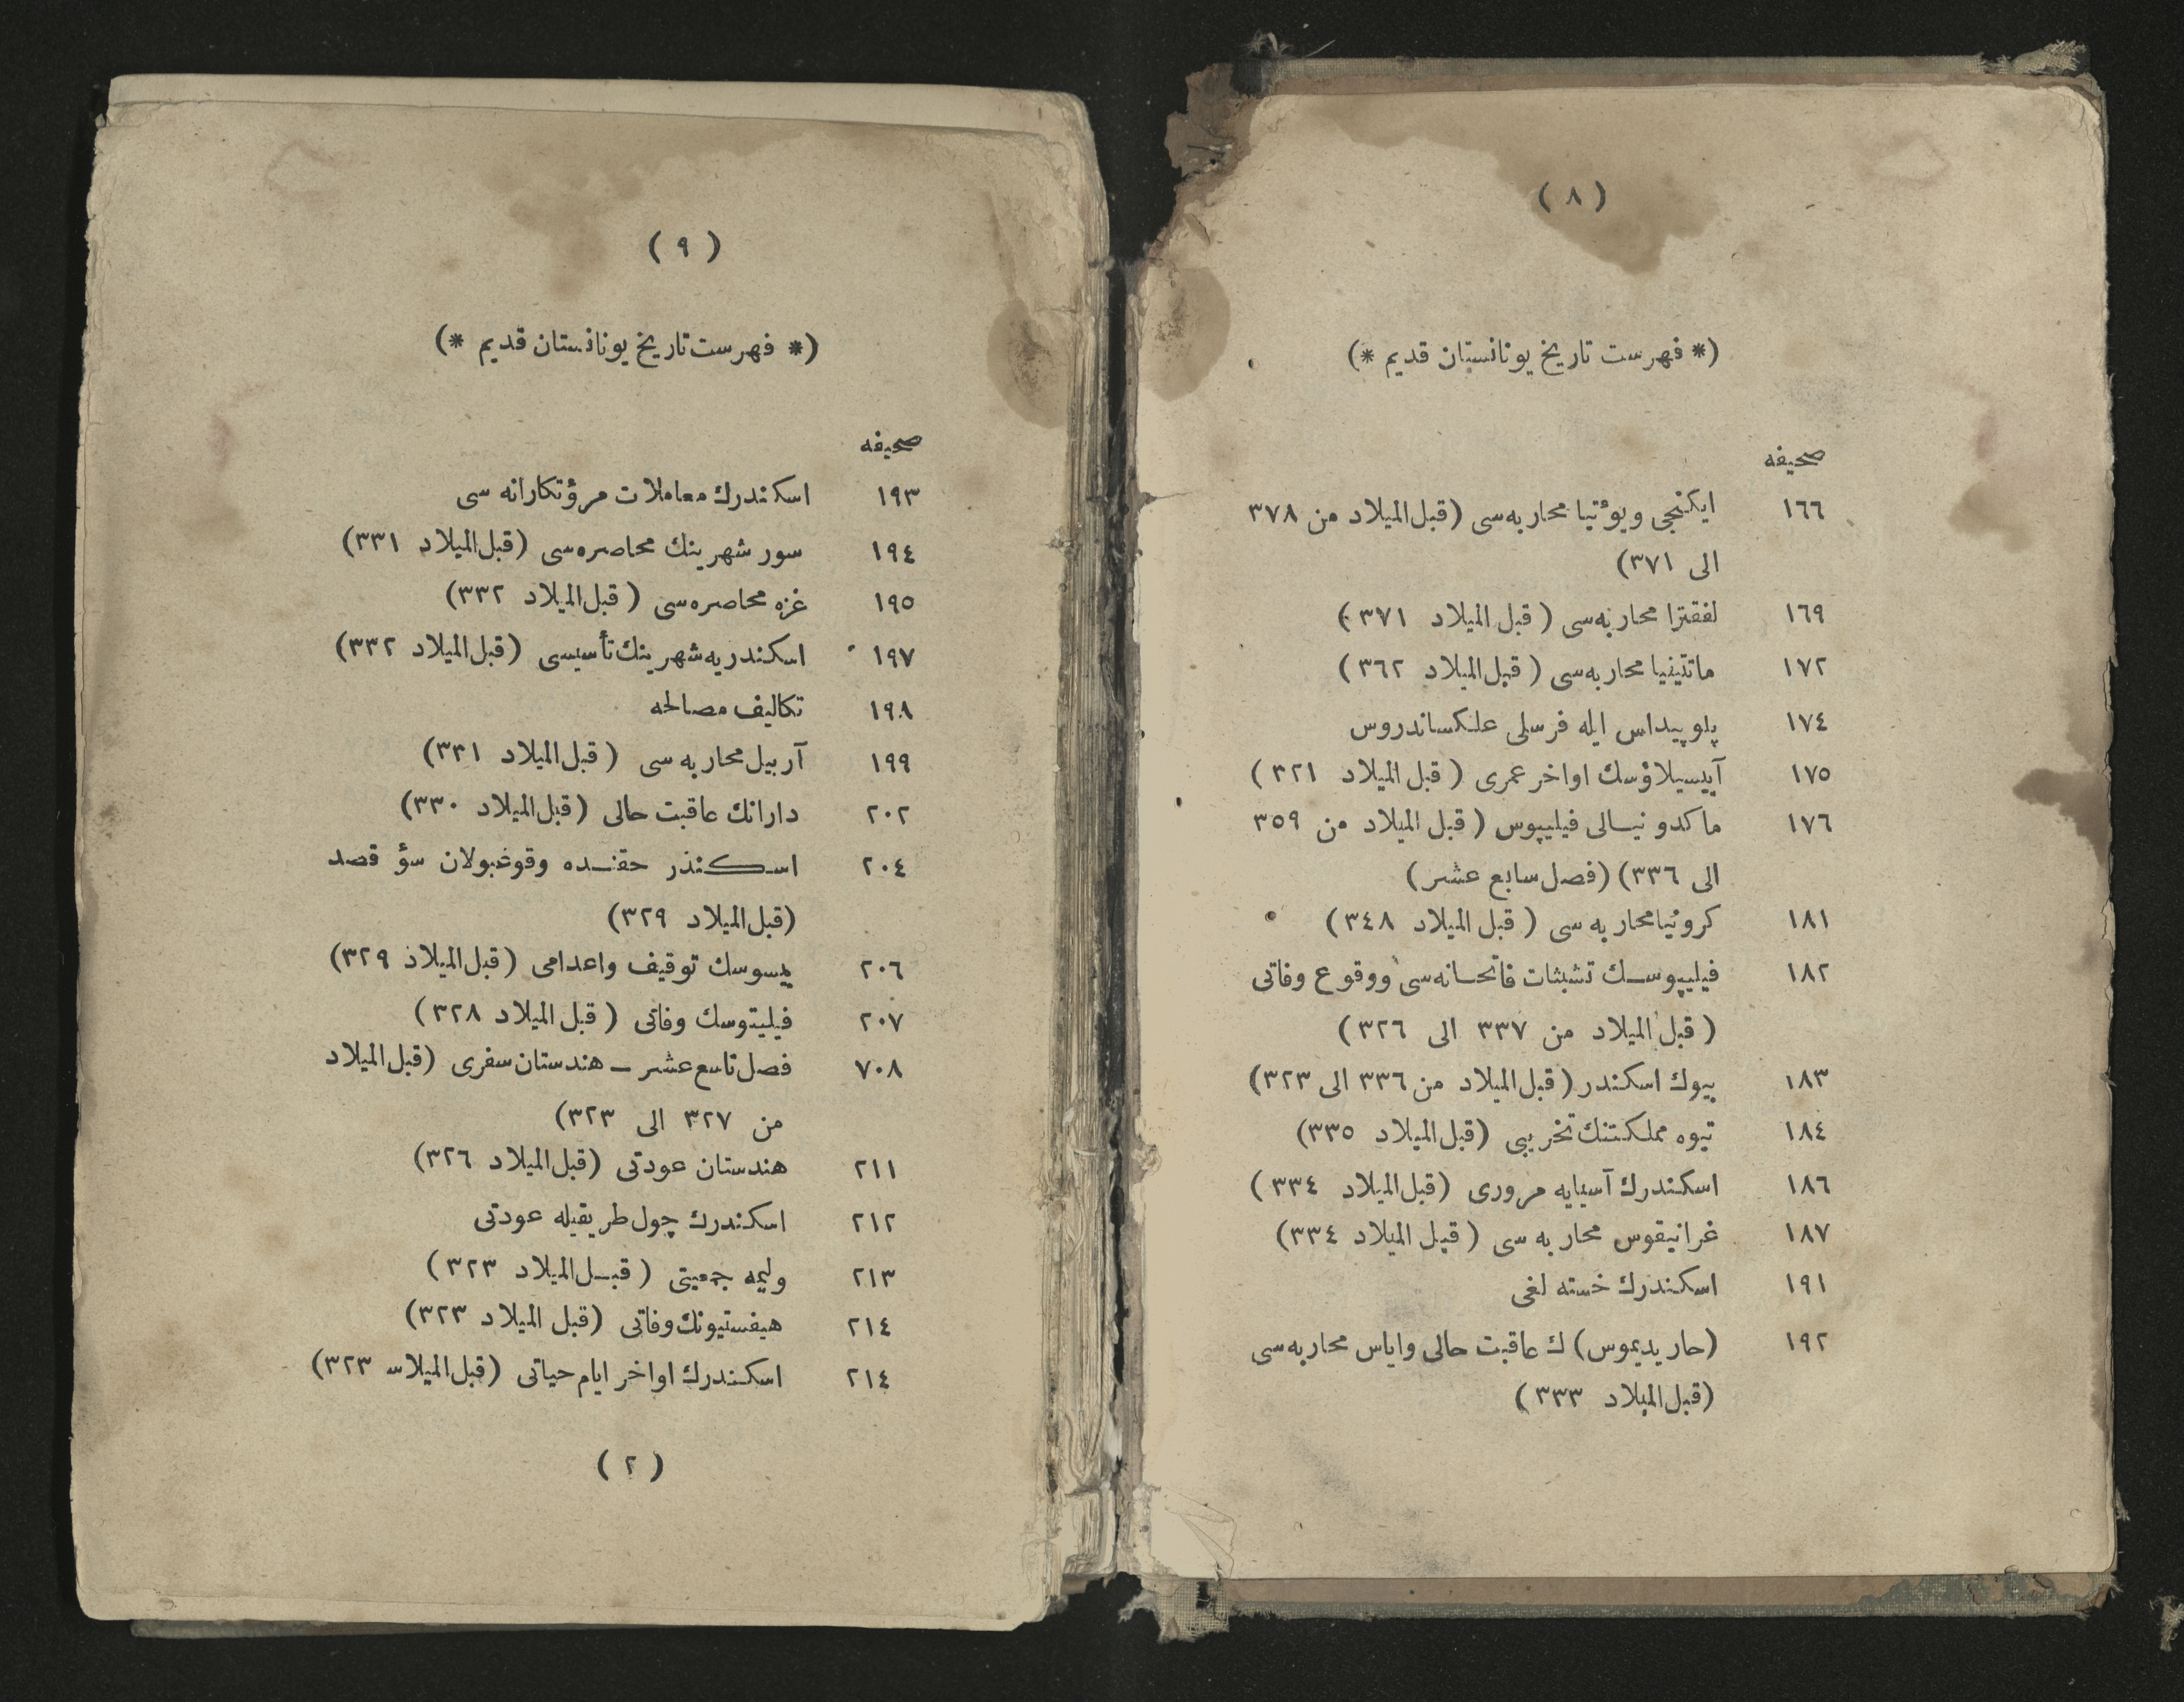 (٨)
(* فهرست تاريخ يونانستان قديم *)
صحيفه
١٦٦ ايكنجی ويوٴتيا محاربه‌سی (قبل الميلاد من ٣٧٨
الی ٣٧١)
١٦٩ لفقترا محاربه‌سی (قبل الميلاد ٣٧١)
١٧٢ مانتينيا محاربه‌سی (قبل الميلاد ٣٦٢)
١٧٤ پلوپيداس ايله فرسلی علكساندروس
١٧٥ آيسيلاؤسك اواخر عمری (قبل الميلاد ٣٢١)
١٧٦ ماكدونيالی فيليپوس (قبل الميلاد من ٣٥٩
الی ٣٣٦) (فصل سابع عشر)
١٨١ كرونيا محاربه سی (قبل الميلاد ٣٤٨)
١٨٢ فيليپوسك تشبثات فاتحانه‌سی ووقوع وفاتی
(قبل الميلاد من ٣٣٧ الی ٣٢٦)
١٨٣ بيوك اسكندر (قبل الميلاد من ٣٣٦ الی ٣٢٣)
١٨٤ تيوه مملكتنك تخريبی (قبل الميلاد ٣٣٥)
١٨٦ اسكندرك آسيايه مروری (قبل الميلاد ٣٣٤)
١٨٧ غرانيقوس محاربه سی (قبل الميلاد ٣٣٤)
١٩١ اسكندرك خسته لغی
١٩٢ (حاريديموس) ك عاقبت حالی واياس محاربه‌سی
(قبل الميلاد ٣٣٣)
(٩)
(* فهرست تاريخ يونانستان قديم *)
صحيفه
١٩٣ اسكندرك معاملات مروٴتكارانه سی
١٩٤ سور شهرينك محاصره‌سی (قبل الميلاد ٣٣١)
١٩٥ غزه محاصره‌سی (قبل الميلاد ٣٣٢)
١٩٧ اسكندريه شهرينك تأسيسی (قبل الميلاد ٣٣٢)
١٩٨ تكاليف مصالحه
١٩٩ آربيل محاربه سی (قبل الميلاد ٣٣١)
٢٠٢ دارانك عاقبت حالی (قبل الميلاد ٣٣٠)
٢٠٤ اسكندر حقنده وقوعبولان سوٴ قصد
(قبل الميلاد ٣٢٩)
٢٠٦ يسوسك توقيف واعدامی (قبل الميلاد ٣٢٩)
٢٠٧ فيليتوسك وفاتی (قبل الميلاد ٣٢٨)
٧٠٨ فصل تاسع عشر – هندستان سفری (قبل الميلاد
من ٣٢٧ الی ٣٢٣)
٢١١ هندستان عودتی (قبل الميلاد ٣٢٦)
٢١٢ اسكندرك چول طريقيله عودتی
٢١٣ وليمه جمعيتی (قبل الميلاد ٣٢٣)
٢١٤ هيفستيونك وفاتی (قبل الميلاد ٣٢٣)
٢١٤ اسكندرك اواخر ايام حياتی (قبل الميلاس ٣٢٣)
(٢)